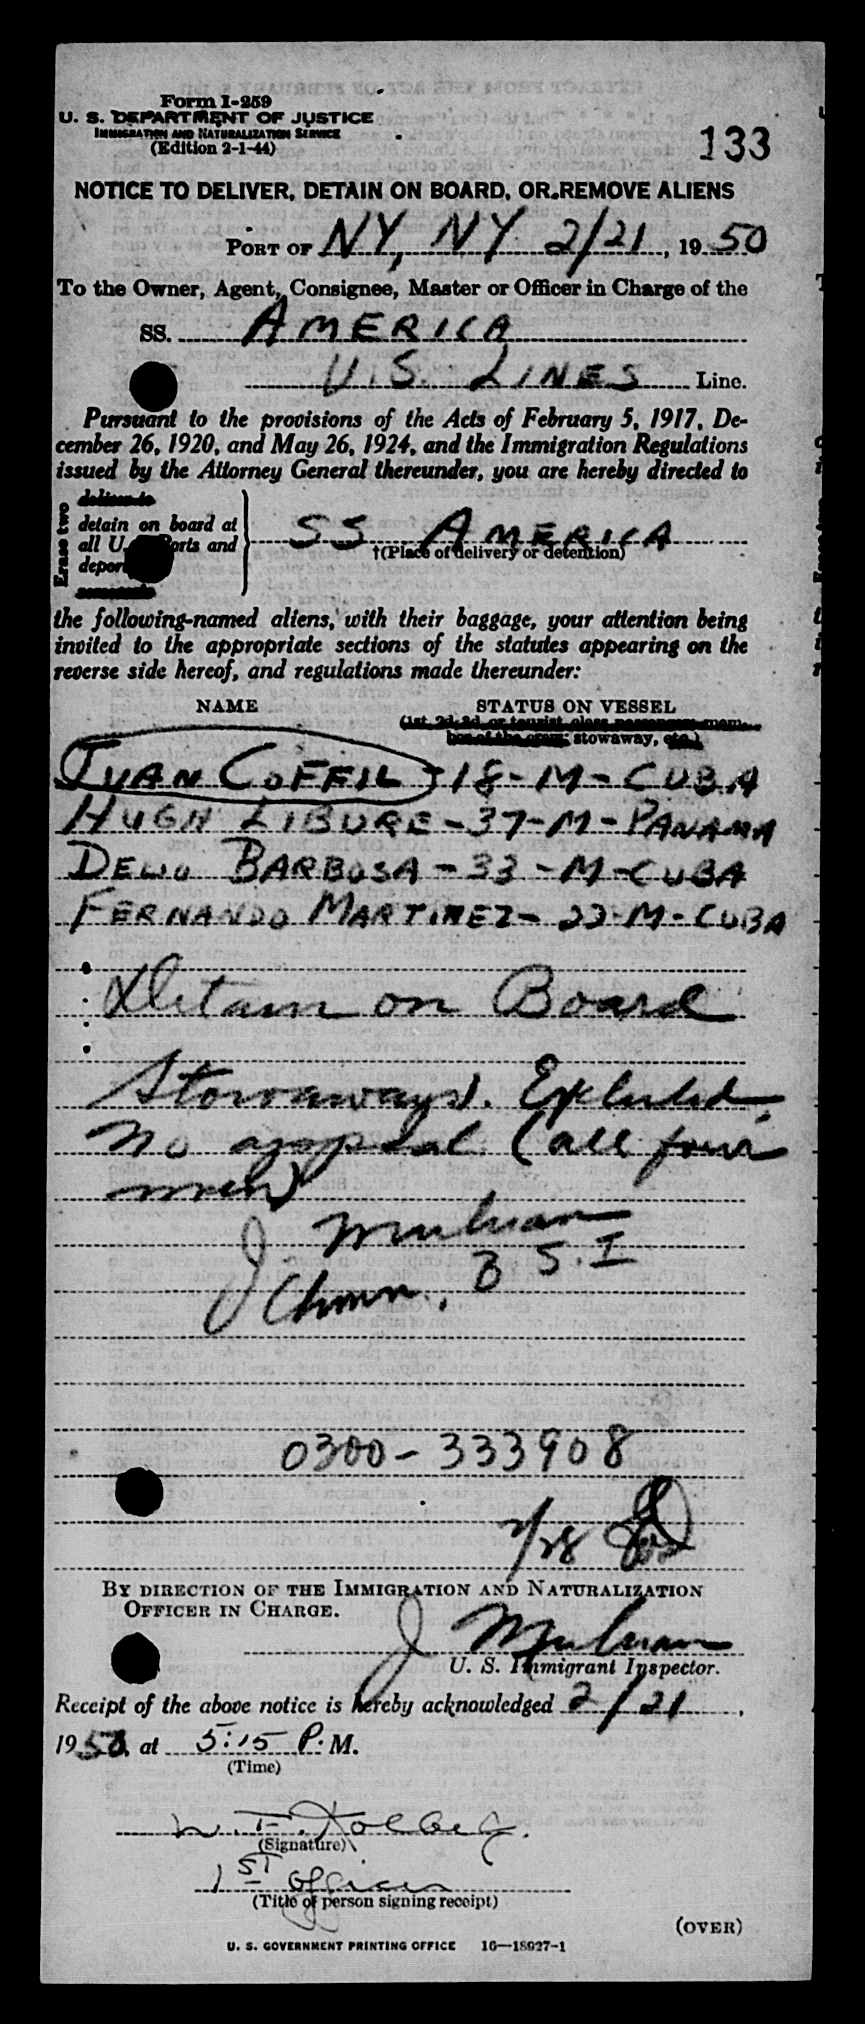 Form I-259
U. S. DEPARTMENT OF JUSTICE
IMMIGRATION AND NATURALIZATION SERVICE
(Edition 2-1-44)
133
NOTICE TO DELIVER, DETAIN ON BOARD, OR REMOVE ALIENS
PORT OF NY, NY 2/21, 1950
To the Owner, Agent, Consignee, Master or Officer in Charge of the
SS. AMERICA
U.S. LINES Line.
Pursuant to the provisions of the Acts of February 5, 1917, De-
cember 26, 1920, and May 26, 1924, and the Immigration Regulations
issued by the Attorney General thereunder, you are hereby directed to
Erase two
deliver to
detain on board at
all U. Ports and
depor
SS AMERICA
†(Place of delivery or detention)
the following-named aliens, with their baggage, your attention being
invited to the appropriate sections of the statutes appearing on the
reverse side hereof, and regulations made thereunder:
NAME STATUS ON VESSEL
(1st, 2d, 3d, or tourist class passenger, mem-
ber of the crew, stowaway, etc.)
JUAN COFFIL - 18 - M - CUBA
HUGH LIBURE - 37 - M - PANAMA
DELIO BARBOSA - 33 - M - CUBA
FERNANDO MARTINEZ - 22 - M - CUBA
Detain on Board
Stowaways. Excluded.
No appeal (all four
men)
J Mulvan
Chmn., B S. I
0300-333908
2/28
BY DIRECTION OF THE IMMIGRATION AND NATURALIZATION
OFFICER IN CHARGE.
J Mulvan
U. S. Immigrant Inspector.
Receipt of the above notice is hereby acknowledged 2/21,
1950, at 5:15 P. M.
(Time)
W. F. Kolbeg.
(Signature)
1ST Officer
(Title of person signing receipt)
(OVER)
U. S. GOVERNMENT PRINTING OFFICE 16—18927-1